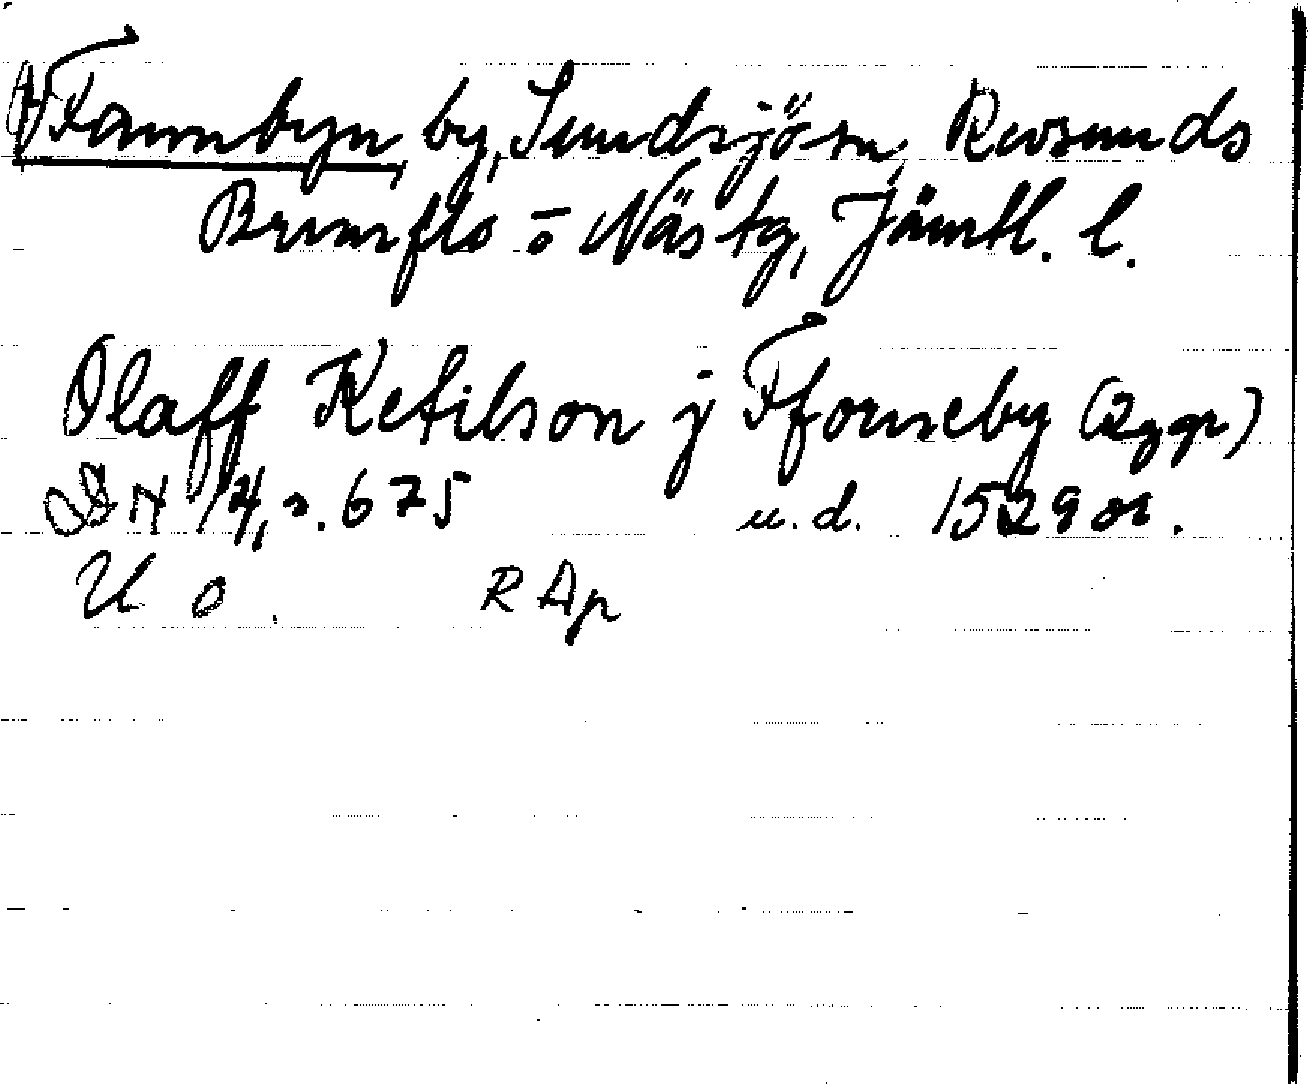 Fannbyn, by, Sundsjö sn, Revsunds
Brunflo o Näs tg, Jämtl. l.
Olaff Ketilson j Fforneby (2 ggr)
DN 14, s. 675 u.d. 1529 or.
U o. RAp